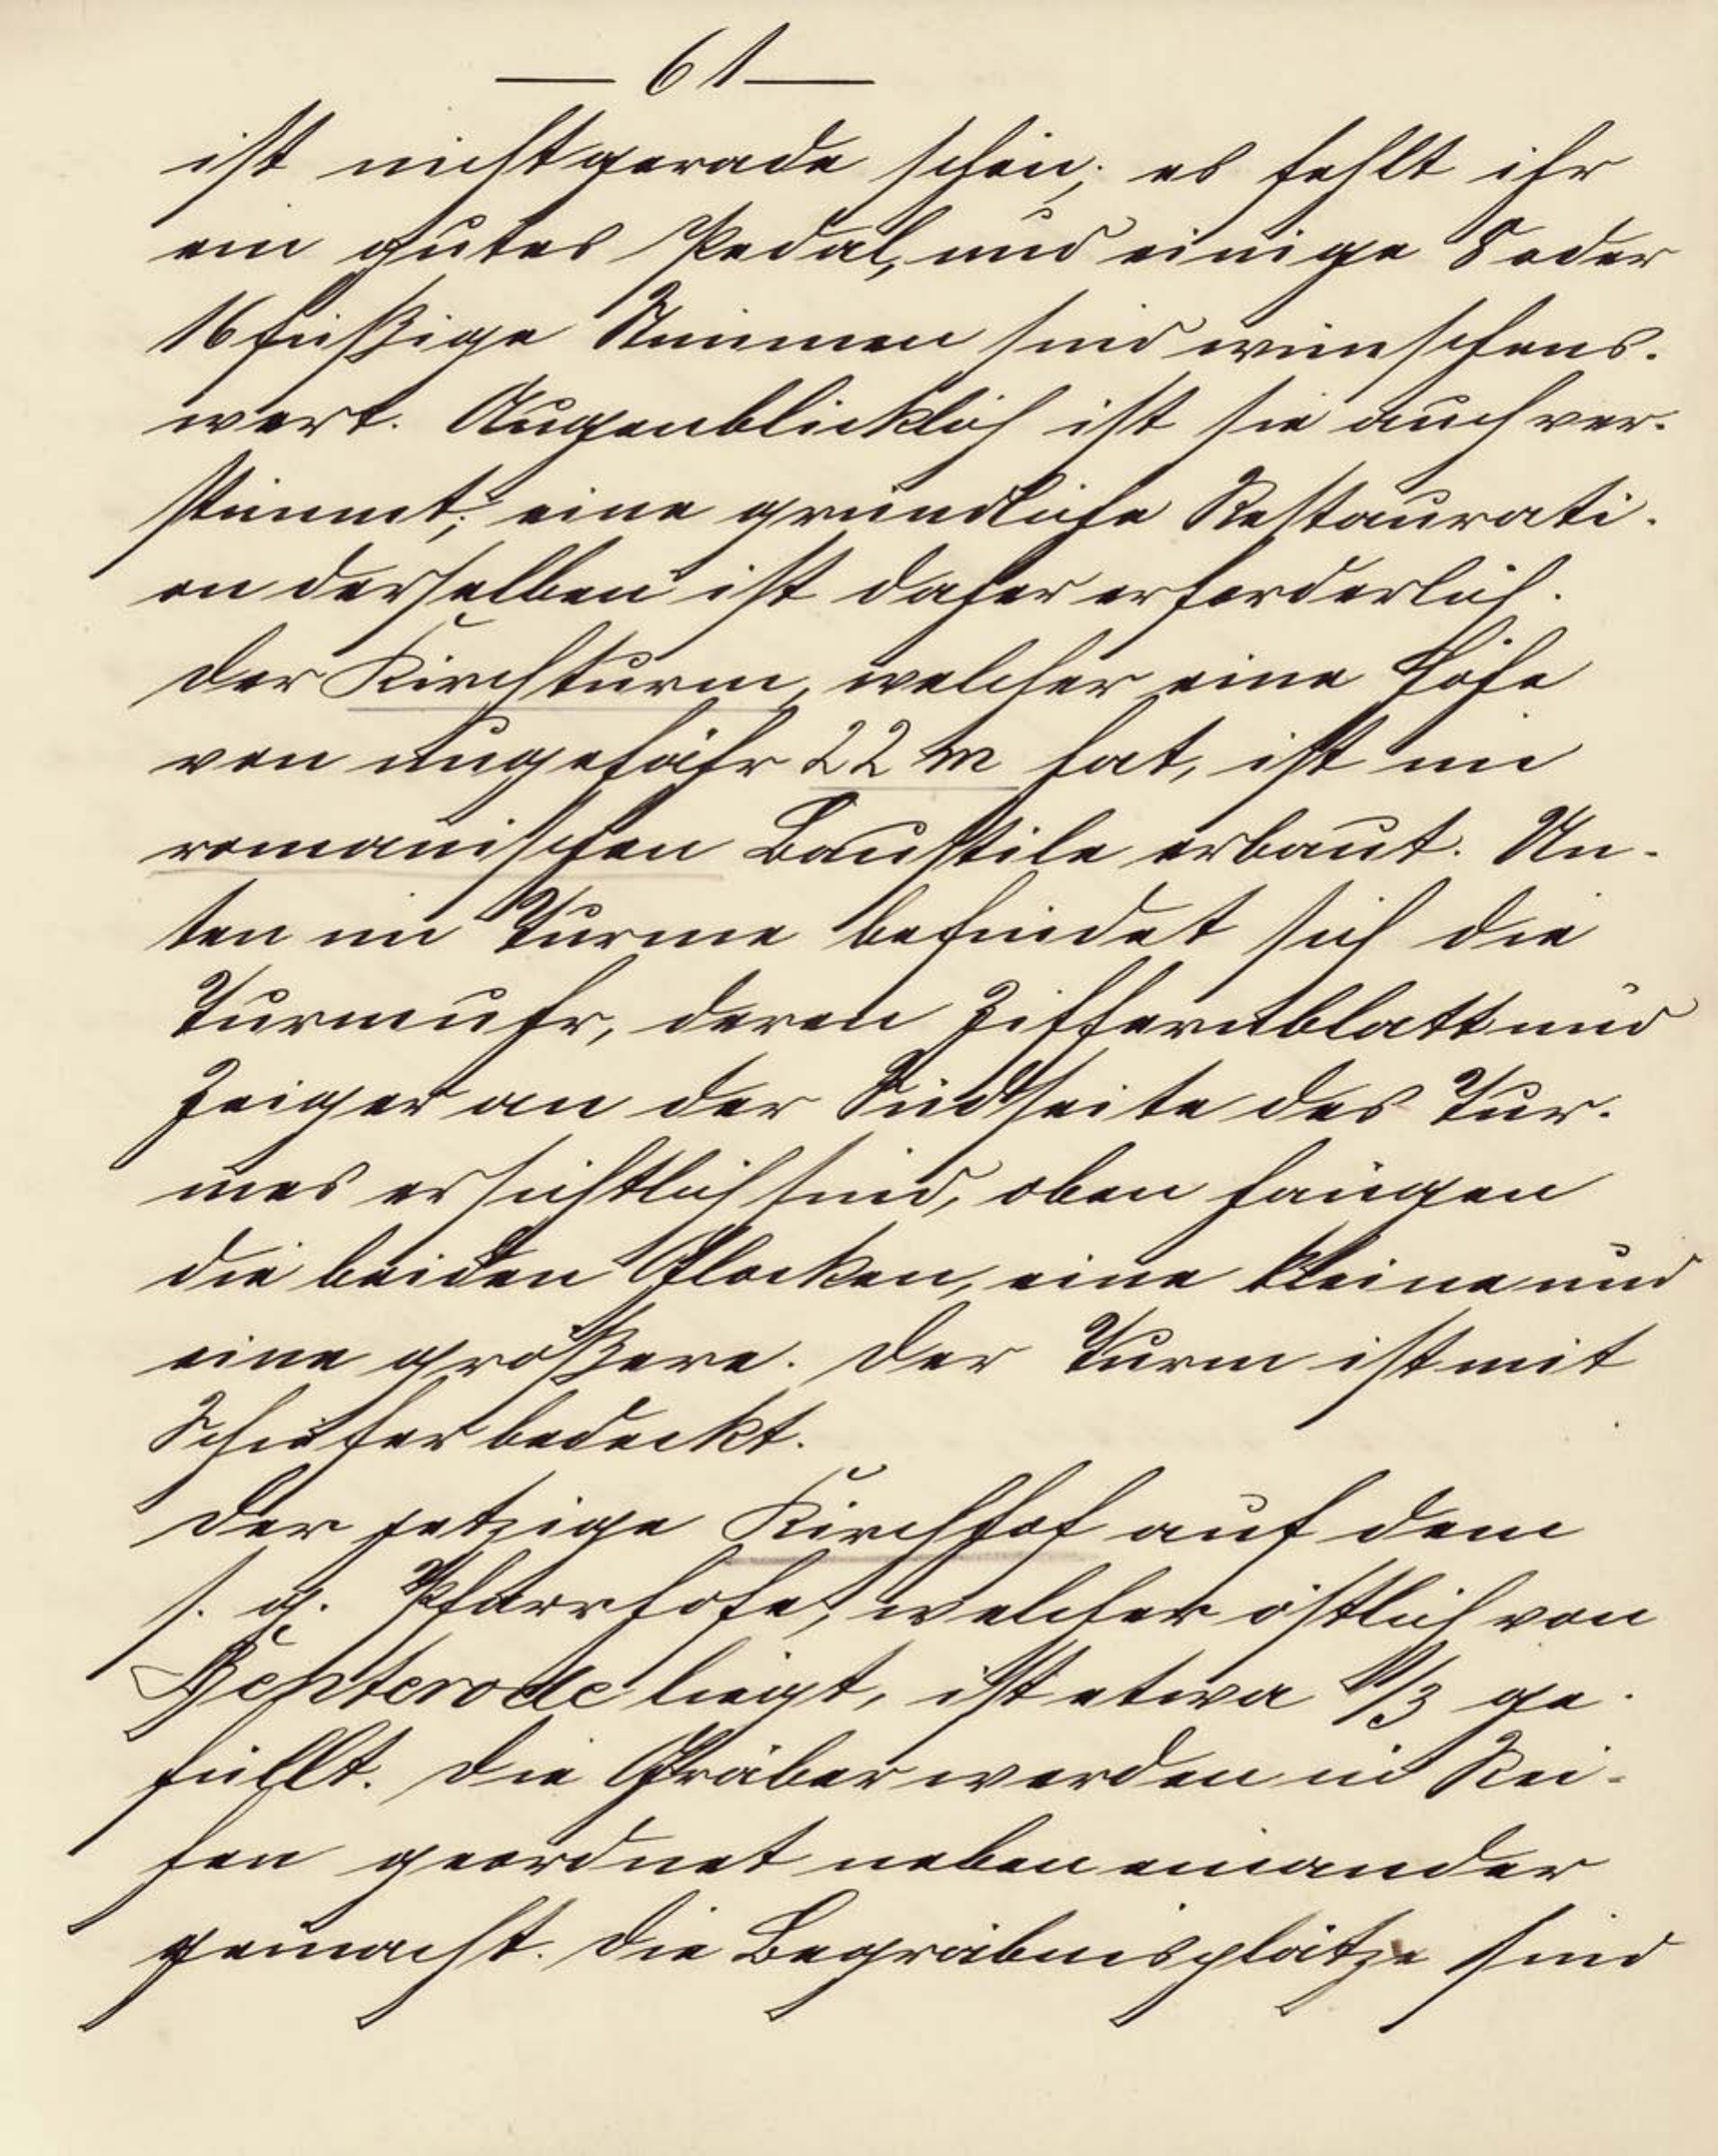 — 61 —
ist nicht gerade schön; es fehlt ihr
ein gutes Pedal, und einige 8 oder
16 füßige Stimmen sind wünschens-
wert. Augenblicklich ist sie auch ver-
stimmt; eine gründliche Restaurati-
on derselben ist daher erforderlich.
Der Kirchturm, welcher eine Höhe
von ungefähr 22 m hat, ist im
romanischen Baustile erbaut. Un-
ten im Turme befindet sich die
Turmuhr, deren Ziffernblatt und
Zeiger an der Südseite des Tur-
mes ersichtlich sind, oben hängen
die beiden Glocken, eine kleine und
eine größere. Der Turm ist mit
Schiefer bedeckt.
Der jetzige Kirchhof auf dem
s. g. Pfarrhofe, welcher östlich von
Hepterode liegt, ist etwa 1/3 ge-
füllt. Die Gräber werden in Rei-
hen geordnet neben einander
gemacht. Die Begräbnisplätze sind